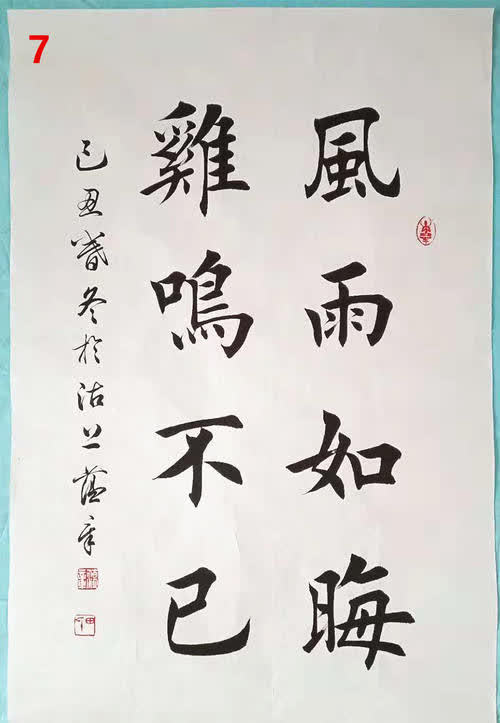 7
風雨如晦
雞鳴不已
己丑冬於沽上